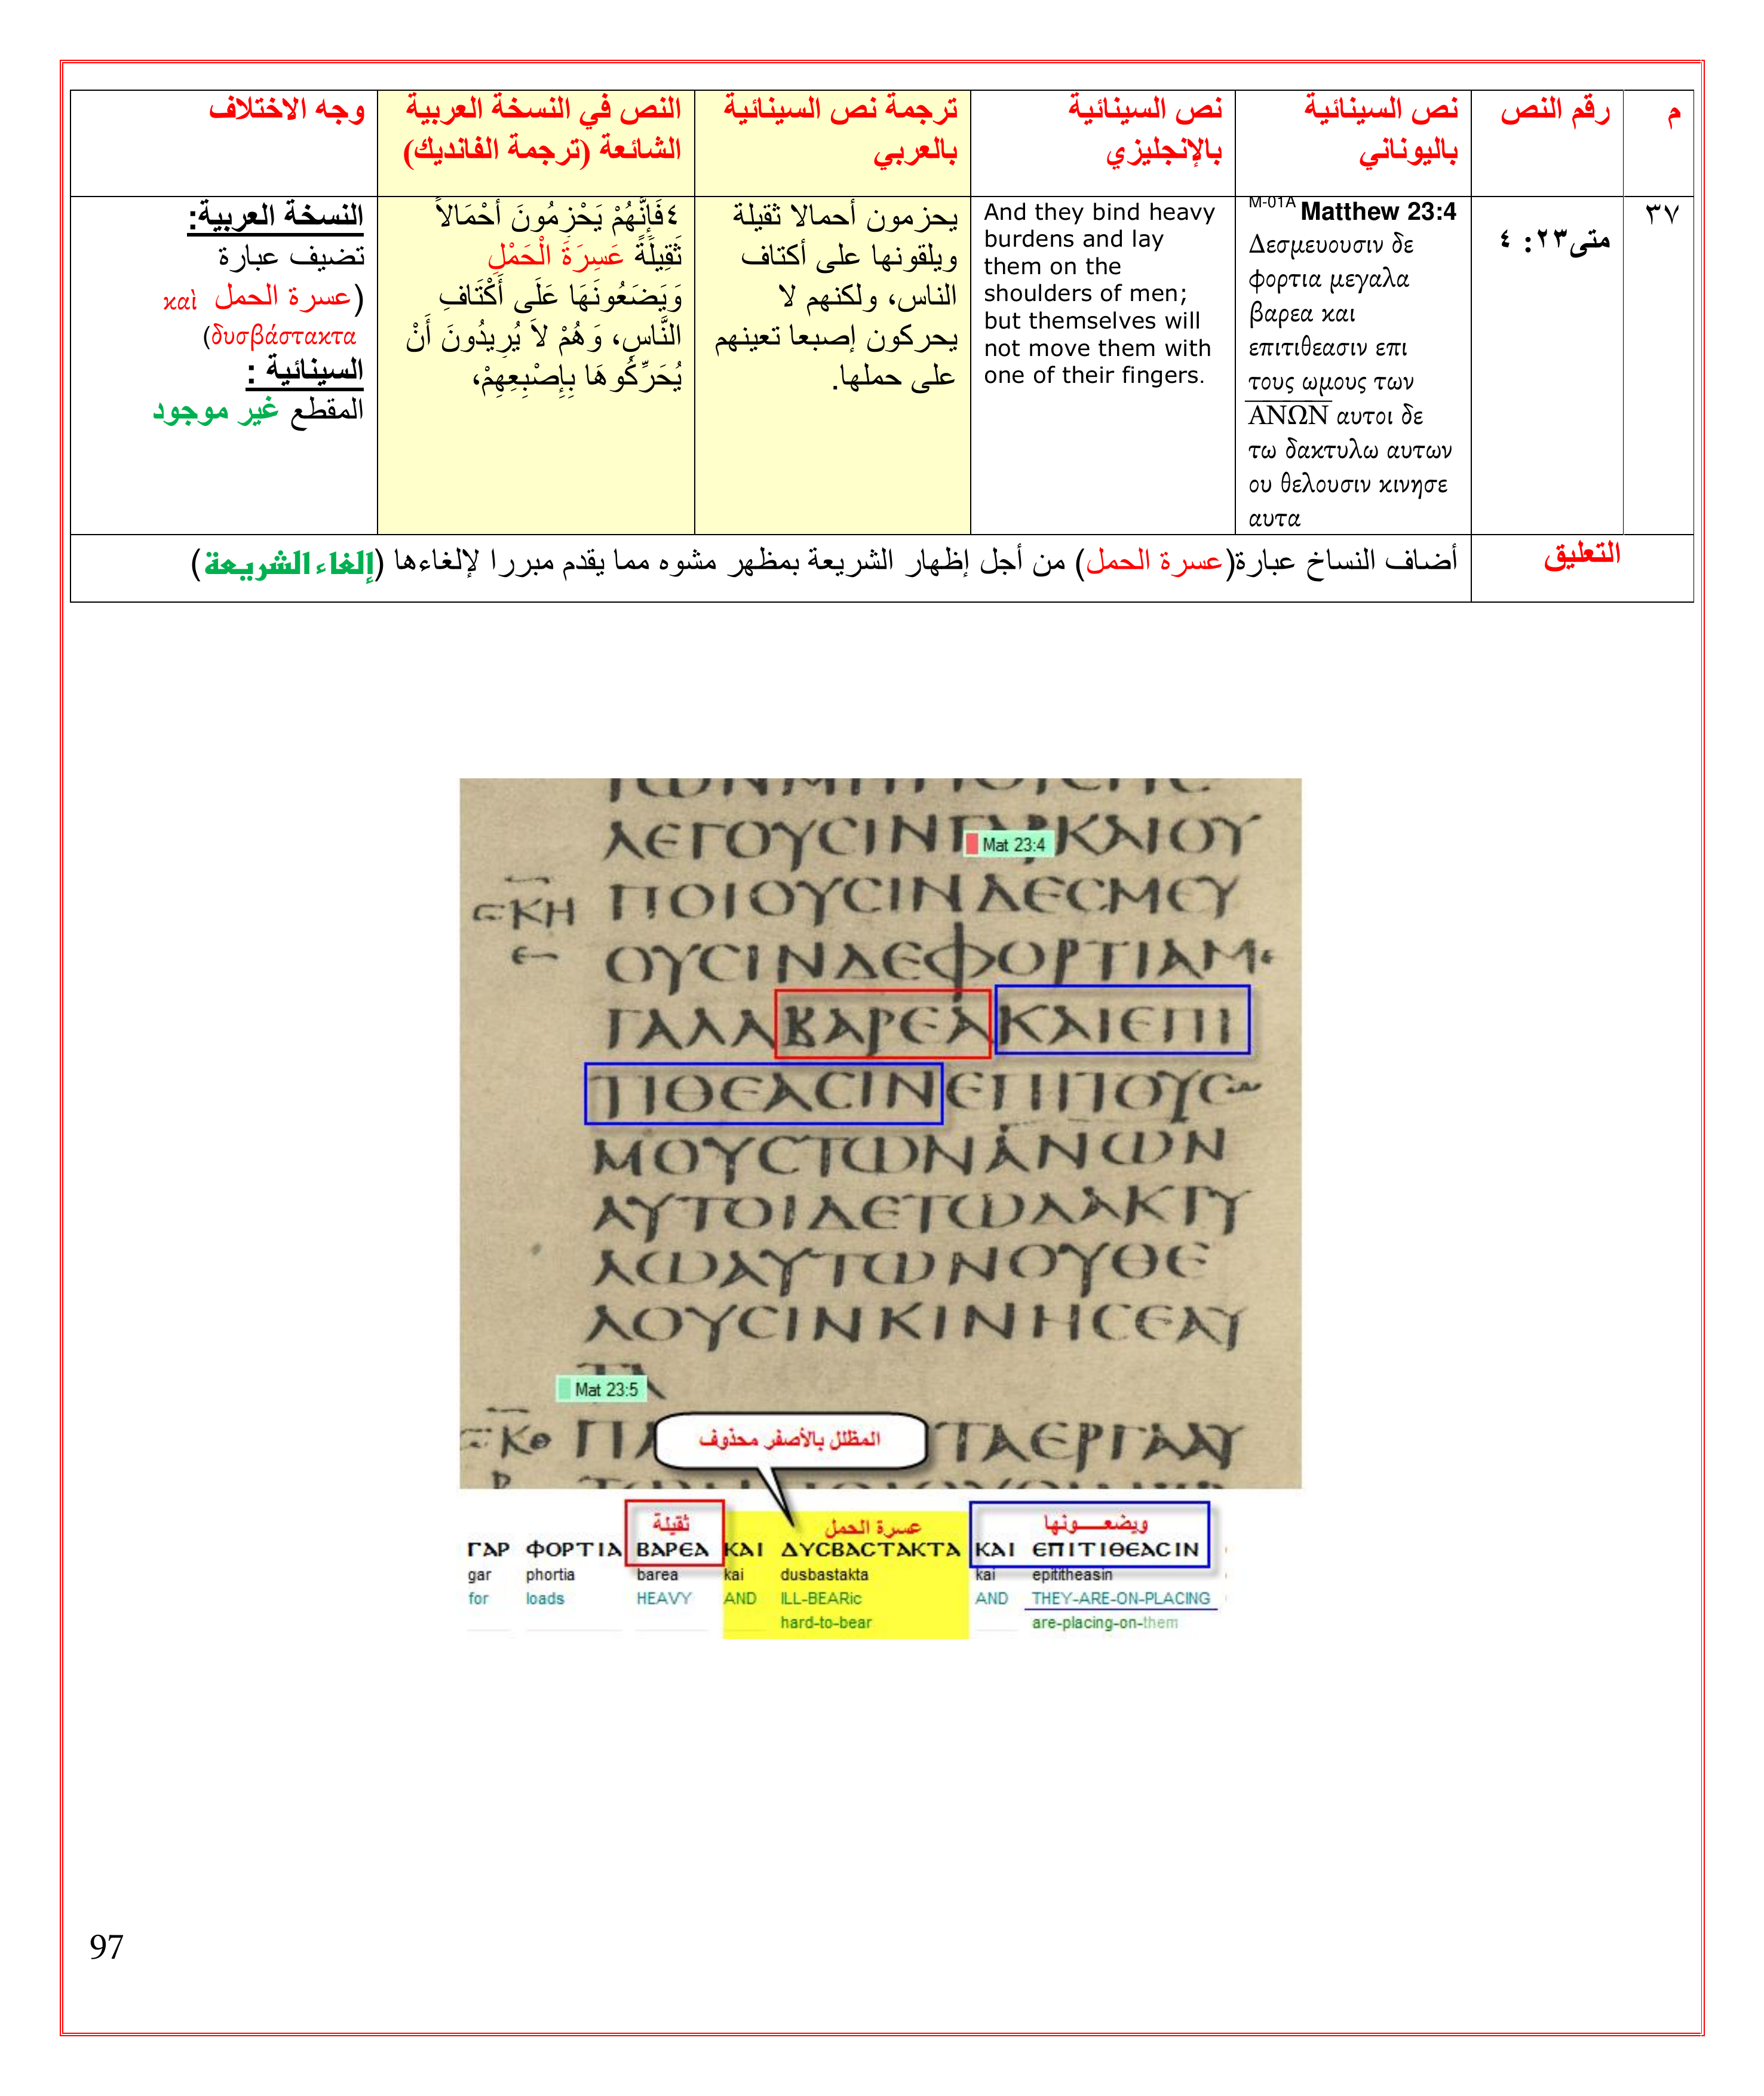 م
رقم النص
نص السينائية
باليوناني
نص السينائية
بالإنجليزي
ترجمة نص السينائية
بالعربي
النص في النسخة العربية
الشائعة (ترجمة الفانديك)
وجه الاختلاف
٣٧
متى٢٣: ٤
M-01A Matthew 23:4
Δεσμευουσιν δε
φορτια μεγαλα
βαρεα και
επιτιθεασιν επι
τους ωμους των
ΑΝΩΝ αυτοι δε
τω δακτυλω αυτων
ου θελουσιν κινησε
αυτα
And they bind heavy
burdens and lay
them on the
shoulders of men;
but themselves will
not move them with
one of their fingers.
يحزمون أحمالا ثقيلة
ويلقونها على أكتاف
الناس، ولكنهم لا
يحركون إصبعا تعينهم
على حملها.
٤فَإِنَّهُمْ يَحْزِمُونَ أَحْمَالاً
ثَقِيلَةً عَسِرَةَ الْحَمْلِ
وَيَضَعُونَهَا عَلَى أَكْتَافِ
النَّاسِ، وَهُمْ لاَ يُرِيدُونَ أَنْ
يُحَرِّكُوهَا بِإِصْبِعِهِمْ،
النسخة العربية:
تضيف عبارة
(عسرة الحمل καὶ
δυσβάστακτα)
السينائية :
المقطع غير موجود
التعليق
أضاف النساخ عبارة(عسرة الحمل) من أجل إظهار الشريعة بمظهر مشوه مما يقدم مبررا لإلغاءها (إلغاء الشريعة)
ΛΕΓΟΥCΙΝΓΑΡΚΑΙΟΥ
Mat 23:4
ΠΟΙΟΥCΙΝΔΕCΜΕΥ
ΟΥCΙΝΔΕΦΟΡΤΙΑΜΕ
ΓΑΛΑΒΑΡΕΑΚΑΙΕΠΙ
ΤΙΘΕΑCΙΝΕΠΙΤΟΥCΩ
ΜΟΥCΤΩΝΑΝΩΝ
ΑΥΤΟΙΔΕΤΩΔΑΚΤΥ
ΛΩΑΥΤΩΝΟΥΘΕ
ΛΟΥCΙΝΚΙΝΗCΕΑΥ
ΤΑ
Mat 23:5
ΤΑΕΡΓΑΑΥ
المظلل بالأصفر محذوف
ثقيلة
عسرة الحمل
ويضعـــونها
ΓΑΡ ΦΟΡΤΙΑ ΒΑΡΕΑ ΚΑΙ ΔΥCΒΑCΤΑΚΤΑ ΚΑΙ ΕΠΙΤΙΘΕΑCΙΝ
gar phortia barea kai dusbastakta kai epititheasin
for loads HEAVY AND ILL-BEARic AND THEY-ARE-ON-PLACING
hard-to-bear are-placing-on-them
97